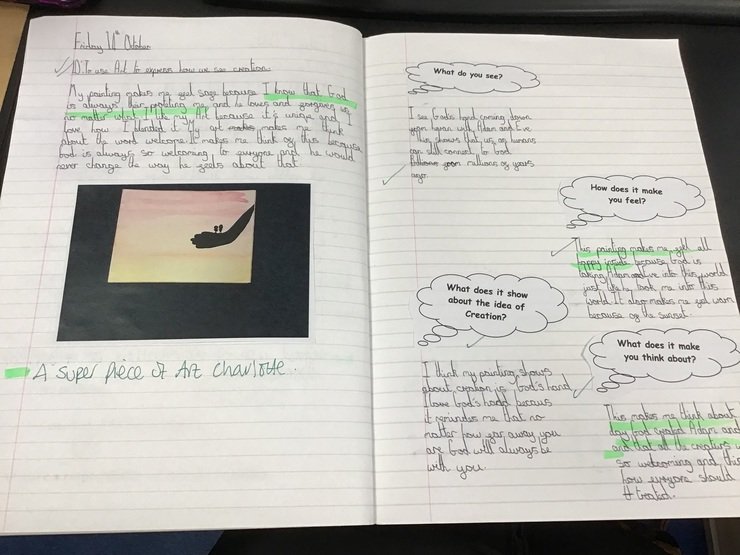 Friday 11th October
LO: To use Art to express how we see creation.
My painting makes me feel safe because I know that God
is always their protecting me and he loves and forgives us
no matter what I like my Art because it's unique and I
love how I blended it My art makes me think
about the word welcome. It makes me think of this because
God is always so welcoming to everyone and he would
never change the way he feels about that.
A super piece of Art Charlotte.
What do you see?
I see God's hand coming down
from heven with Adam and Eve
this shows that us as humans
can still connect to God
from millions of years
ago.
How does it make
you feel?
This painting makes me feel all
happy inside because God is
taking Adam and Eve into this world
just like he took me into this
world it also makes me feel warm
because of the sunset.
What does it show
about the idea of
Creation?
I think my painting shows
about creation is God's hand
I love God's hand becaus
it reminds me that no
matter how far away you
are God will always be
with you.
What does it make
you think about?
This makes me think about
day God created Adam and
and that all the creators
so welcoming and this
how everyone should
treated.